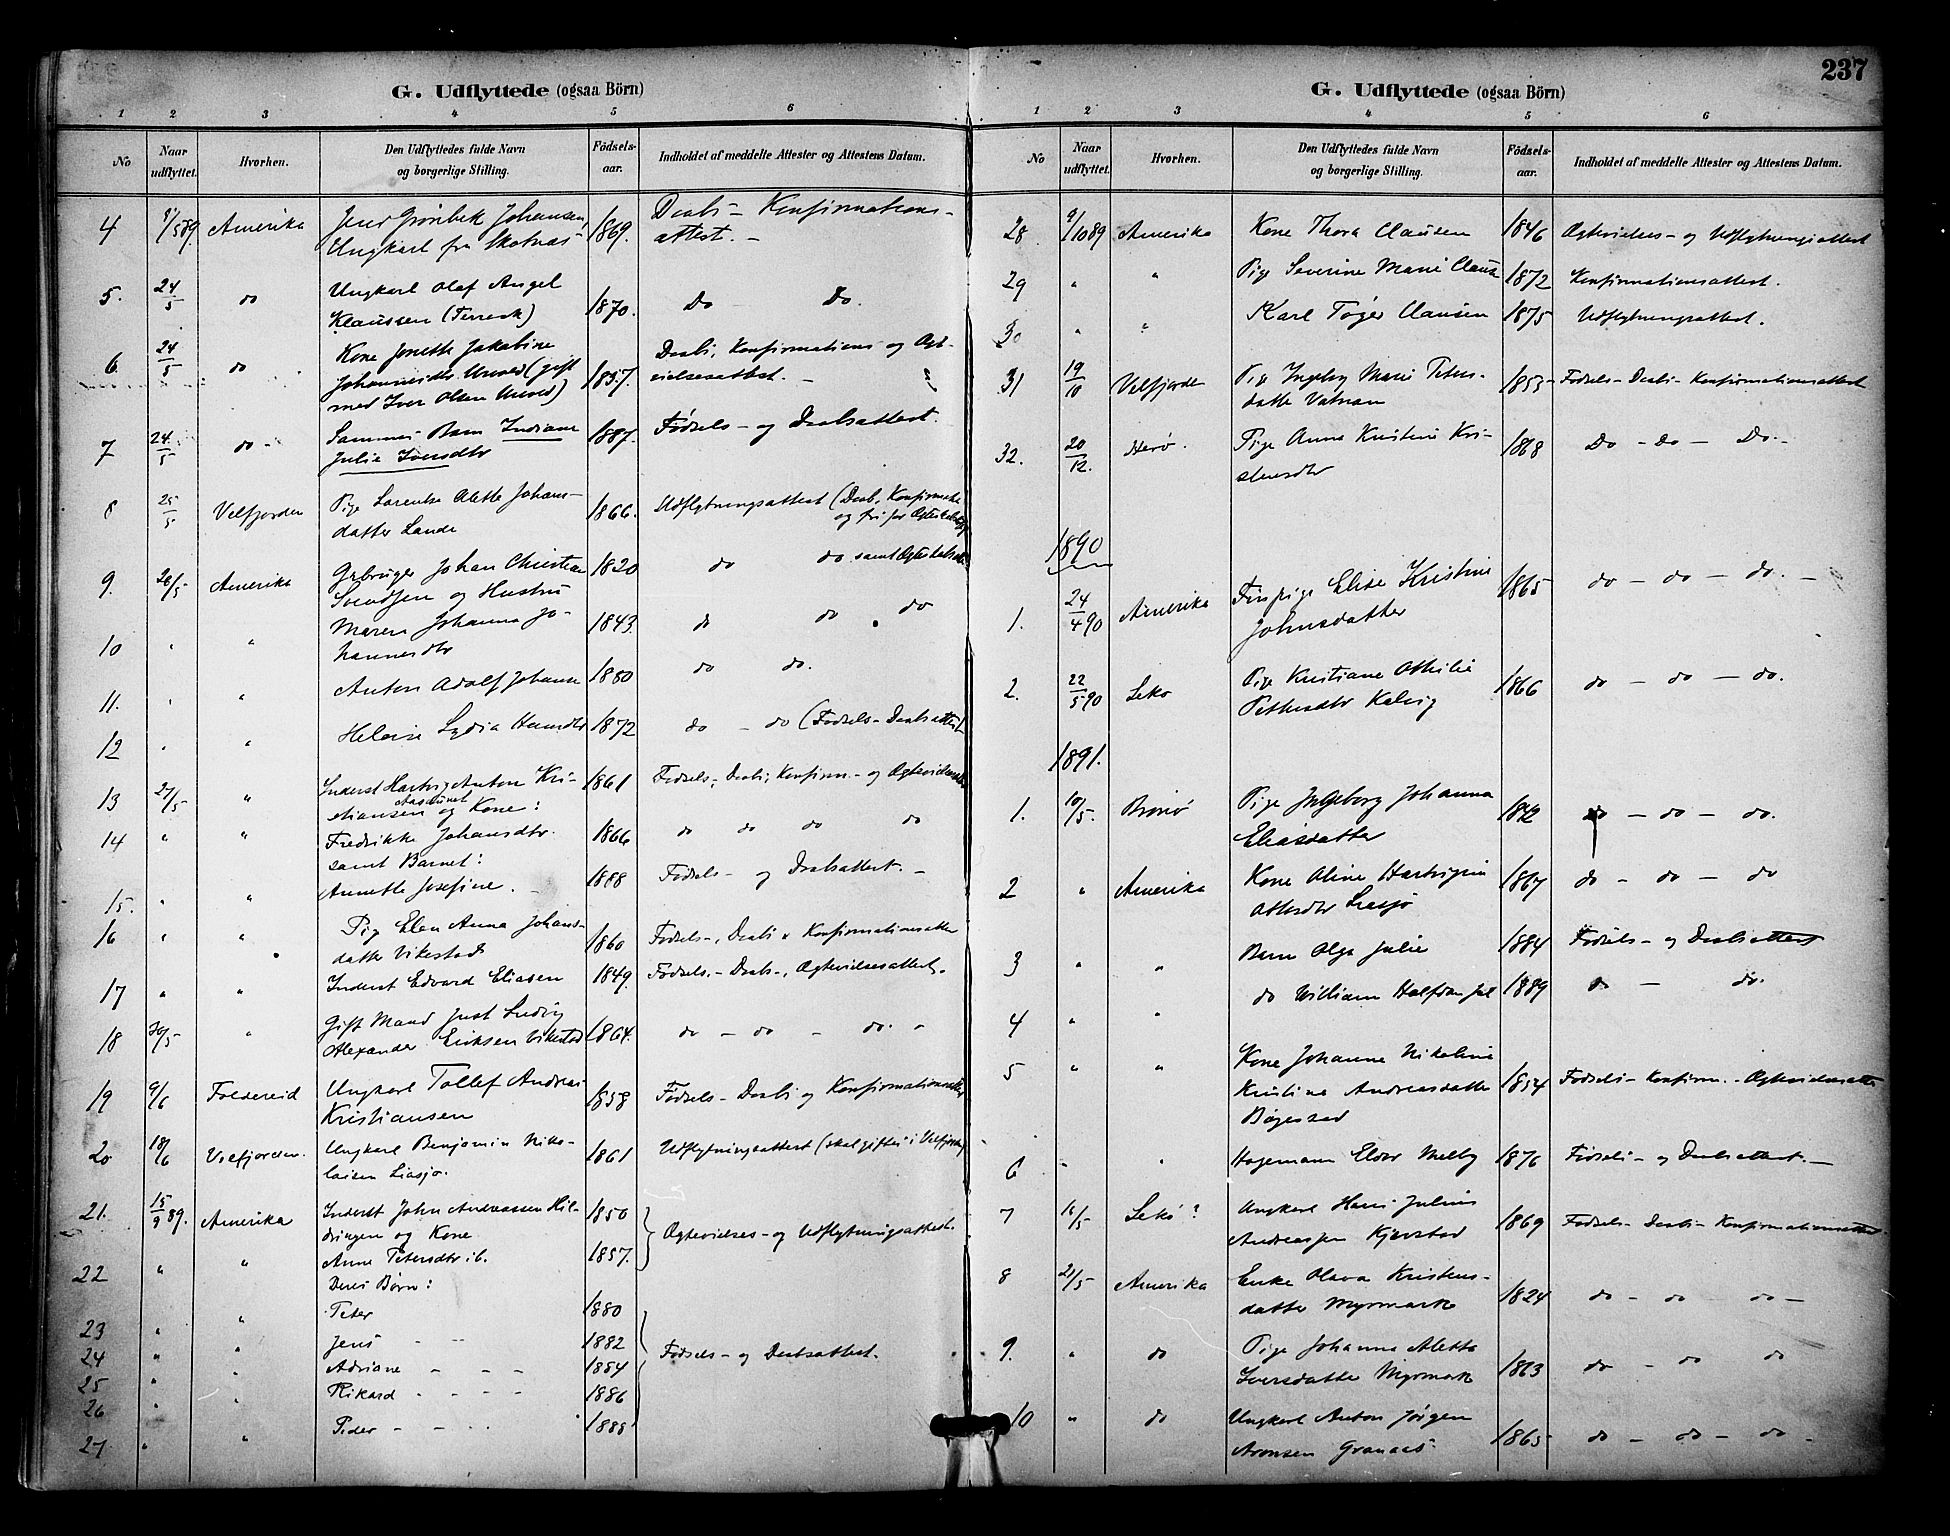 237
G. Udflyttede (ogsaa Börn)
1 2 3 4 5 6
No Naar udflyttet. Hvorhen. Den Udflyttedes fulde Navn og borgerlige Stilling. Födsels-aar. Indholdet af meddelte Attester og Attestens Datum.
4 8/5 89. Amerika Jens Grönbek Johansen, 1869. Daabs- Konfirmations-
Ungkarl fra Skotnæs attest. -
5. 24/5 do Ungkarl Olaf Angel 1870. Do Do.
Klaussen (Terraak)
6. 24/5 do Kone Jonette Jakobine 1857. Daabs, Konfirmations og Ægt-
Johannesdtr. (gift vielsesattest. -
med Iver Olsen
7 24/5 do - Sammes Barn Indiane 1887. Fødsels- og Daabsattest.
Julie Iversdtr
8 25/5 Velfjorden Pige Lorentse Alette Johans- 1866. Udflytningsattest (Daab, Konfirmation
datter Lande og fri for
9. 26/5 Amerika Gbruger Johan Christian 1820 do do samt
Svendsen og Hustru
10 " " Maren Johanna Jo- 1843. do do do
hannesdtr
11. " " Anton Adolf Johansen 1880 do do.
12 " " Heloise Lydia 1872 do - do (Fødsels-Daabsattest)
13 27/5 " Inderst Hartvig Anton Kri- 1861 Fødsels-, Daabs, Konfirm.- og Ægtevielsesatt.
stiansen og Kone:
14 " " Fredrikke Johansdtr. 1866 do do do do
samt Barnet:
15. " " Annette Josefine. - 1888 Fødsels- og Daabsattest. -
16 " " Pige Elen Anna Johans- 1860 Fødsels-, Daabs & Konfirmationsattest
datter Vikestad
17 " " Inderst Edvard Eliasen 1849. Fødsels.- Daabs-, Ægtevielsesattest.
18 30/5 " Gift Mand Just Ludvig 1864. do - do - do. -
Alexander Eriksen Vikestad
19 9/6 Foldereid Ungkarl Tollef Andreas 1858 Fødsels- Daabs og Konfirmationsattest
Kristiansen
20 18/6 Velfjorden. Ungkarl Benjamin Niko- 1861 Udflytningsattest (skal giftes i Velfjorden)
laisen Liasjø.
21. 15/9 89. Amerika Inderst John Andreassen Hil- 1850 Ægtevielses- og Udflytningsattest.
dringen og Kone
22 " " Anne Petersdtr ib. 1857.
Deres Børn:
23 " " Peter 1880
24 " " Jens - - 1882 Fødsels- og Daabsattest.
25 " " Adriane - - - 1884
26 " " Rikard - - - - 1886
27 " " Peder - - - 1888
G. Udflyttede (ogsaa Börn)
1 2 3 4 5 6
No Naar udflyttet. Hvorhen. Den Udflyttedes fulde Navn og borgerlige Stilling. Födsels-aar. Indholdet af meddelte Attester og Attestens Datum.
28 9/10 89 Amerika Kone Thora Clausen 1846 Ægtevielses- og Udflytningsattest
29 " " Pige Severine Marie Clausen 1872 Konfirmationsattest.
30 " " Karl Tøger Clausen 1875 Udflytningsattest.
31 19/10 Velfjorden Pige Ingeborg Marie Peters- 1853 Fødsels- Daabs- Konfirmationsattest
datter Vatnan
32. 20/12. Herø. Pige Anna Kristine Kri- 1868 Do - Do - Do. -
stensdtr
1890
1. 24/4 90 Amerika Pige Elise Kristine 1865 do - do - do. -
Johnsdatter
2. 22/5 90 Lekø Pige Kristiane Othilie 1866 do - do - do.
Pettersdtr Kalvig
1891.
1. 10/5. Brønø Pige Ingeborg Johanna 1842 do - do - do.
Eliasdatter
2 " Amerika Kone Oline Hartvigine 1867 do - do - do
Ottesdtr Liasjø
3 " " Barn Olga Julie 1884 Fødsels- og Daabsattest
4 " " do William Halfdan 1889 do - do.
5 " " Kone Johanne Nikoline 1854 Fødsels- Konfirm.- Ægtevielsesattest
Kristine Andreasdatter
Bøgestad
6 " " Hagemann Melby 1876 Fødsels- og Daabsattest. -
7 16/5 Lekø? Ungkarl Hans Julius 1869 Fødsels- Daabs- Konfirmationsattest
Andreassen Kjærstad
8 21/5 Amerika Enke Olava Kristens- 1824 do - do do -
datter Myrmark
9. " do Pige Johanna Aletta 1863 do - do do
Iversdatter Myrmark
10 " do Ungkarl Anton Jørgen 1865 do - do - do -
Aronsen Granaas